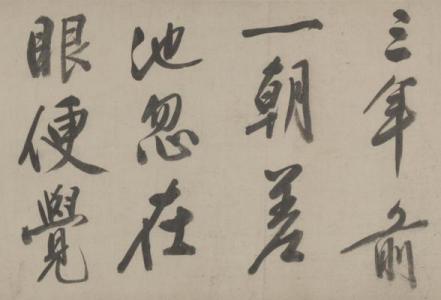 三年前
一朝差
池忽在
眼便覺